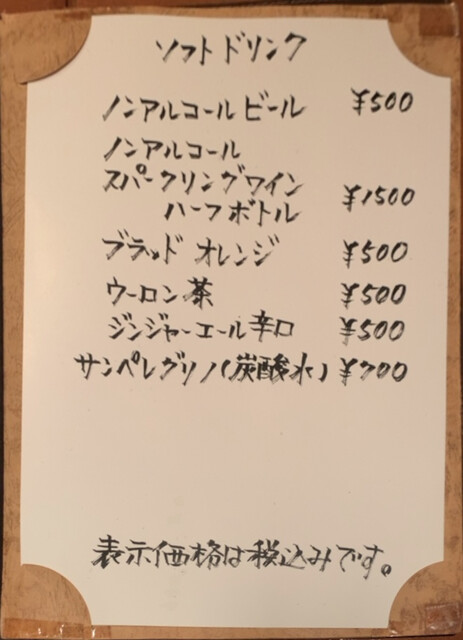 ソフトドリンク
ノンアルコールビール ¥500
ノンアルコール
スパークリングワイン
ハーフボトル ¥1500
ブラッド オレンジ ¥500
ウーロン茶 ¥500
ジンジャーエール辛口 ¥500
サンペレグリノ(炭酸水) ¥700
表示価格は税込みです。